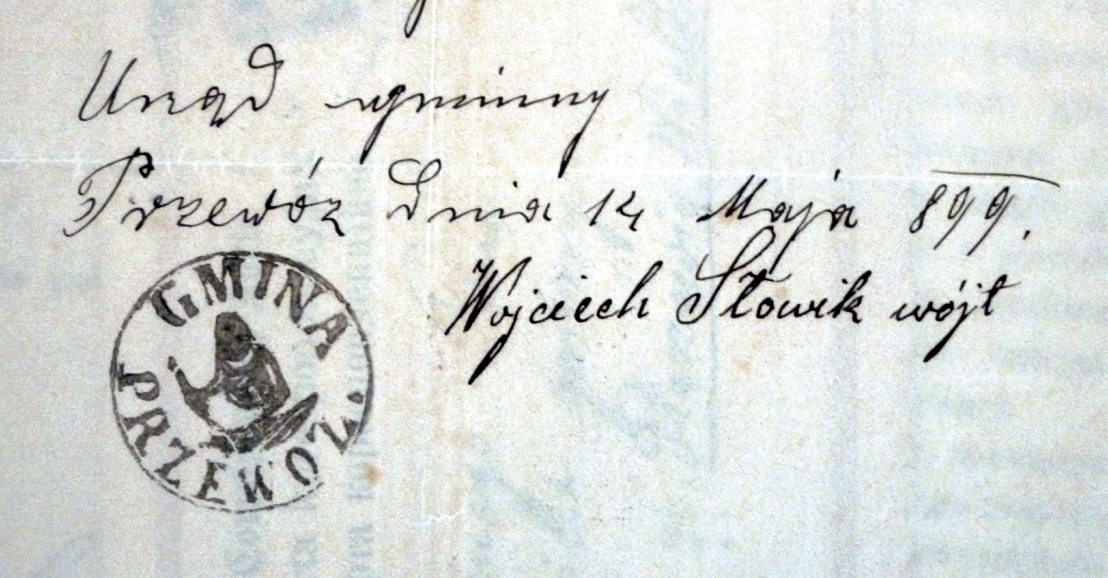 Urząd gminny
Przewóz Dnia 14 Maja 899.
Wojciech Słowik wójt
GMINA
PRZEWOZ.